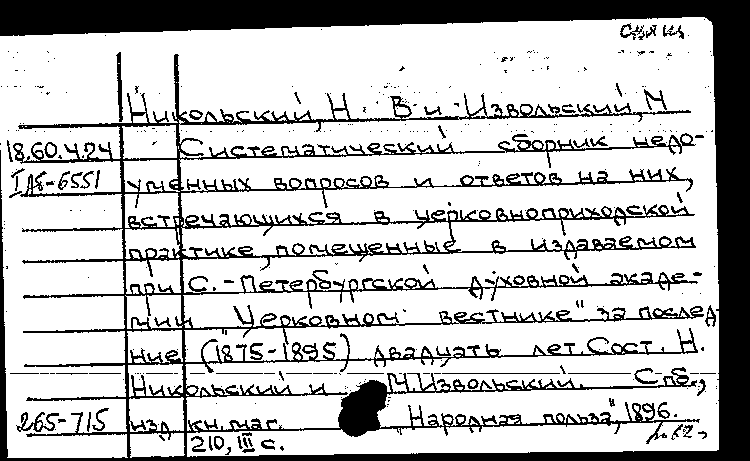 Свящ
Никольский, Н. В. и Извольский, М
18.60.4.24 Систематический сборник недо-
уменных вопросов и ответов на них,
встречающихся в церковноприходской
практике, помещенные в издаваемом
при С.-Петербургской духовной акаде-
мии "Церковном вестнике" за послед
ние (1875-1895) двадцать лет. Сост. Н.
Никольский и М. Извольский. Спб.,
265-715 изд кн. маг. "Народная польза", 1896.
210, III с.